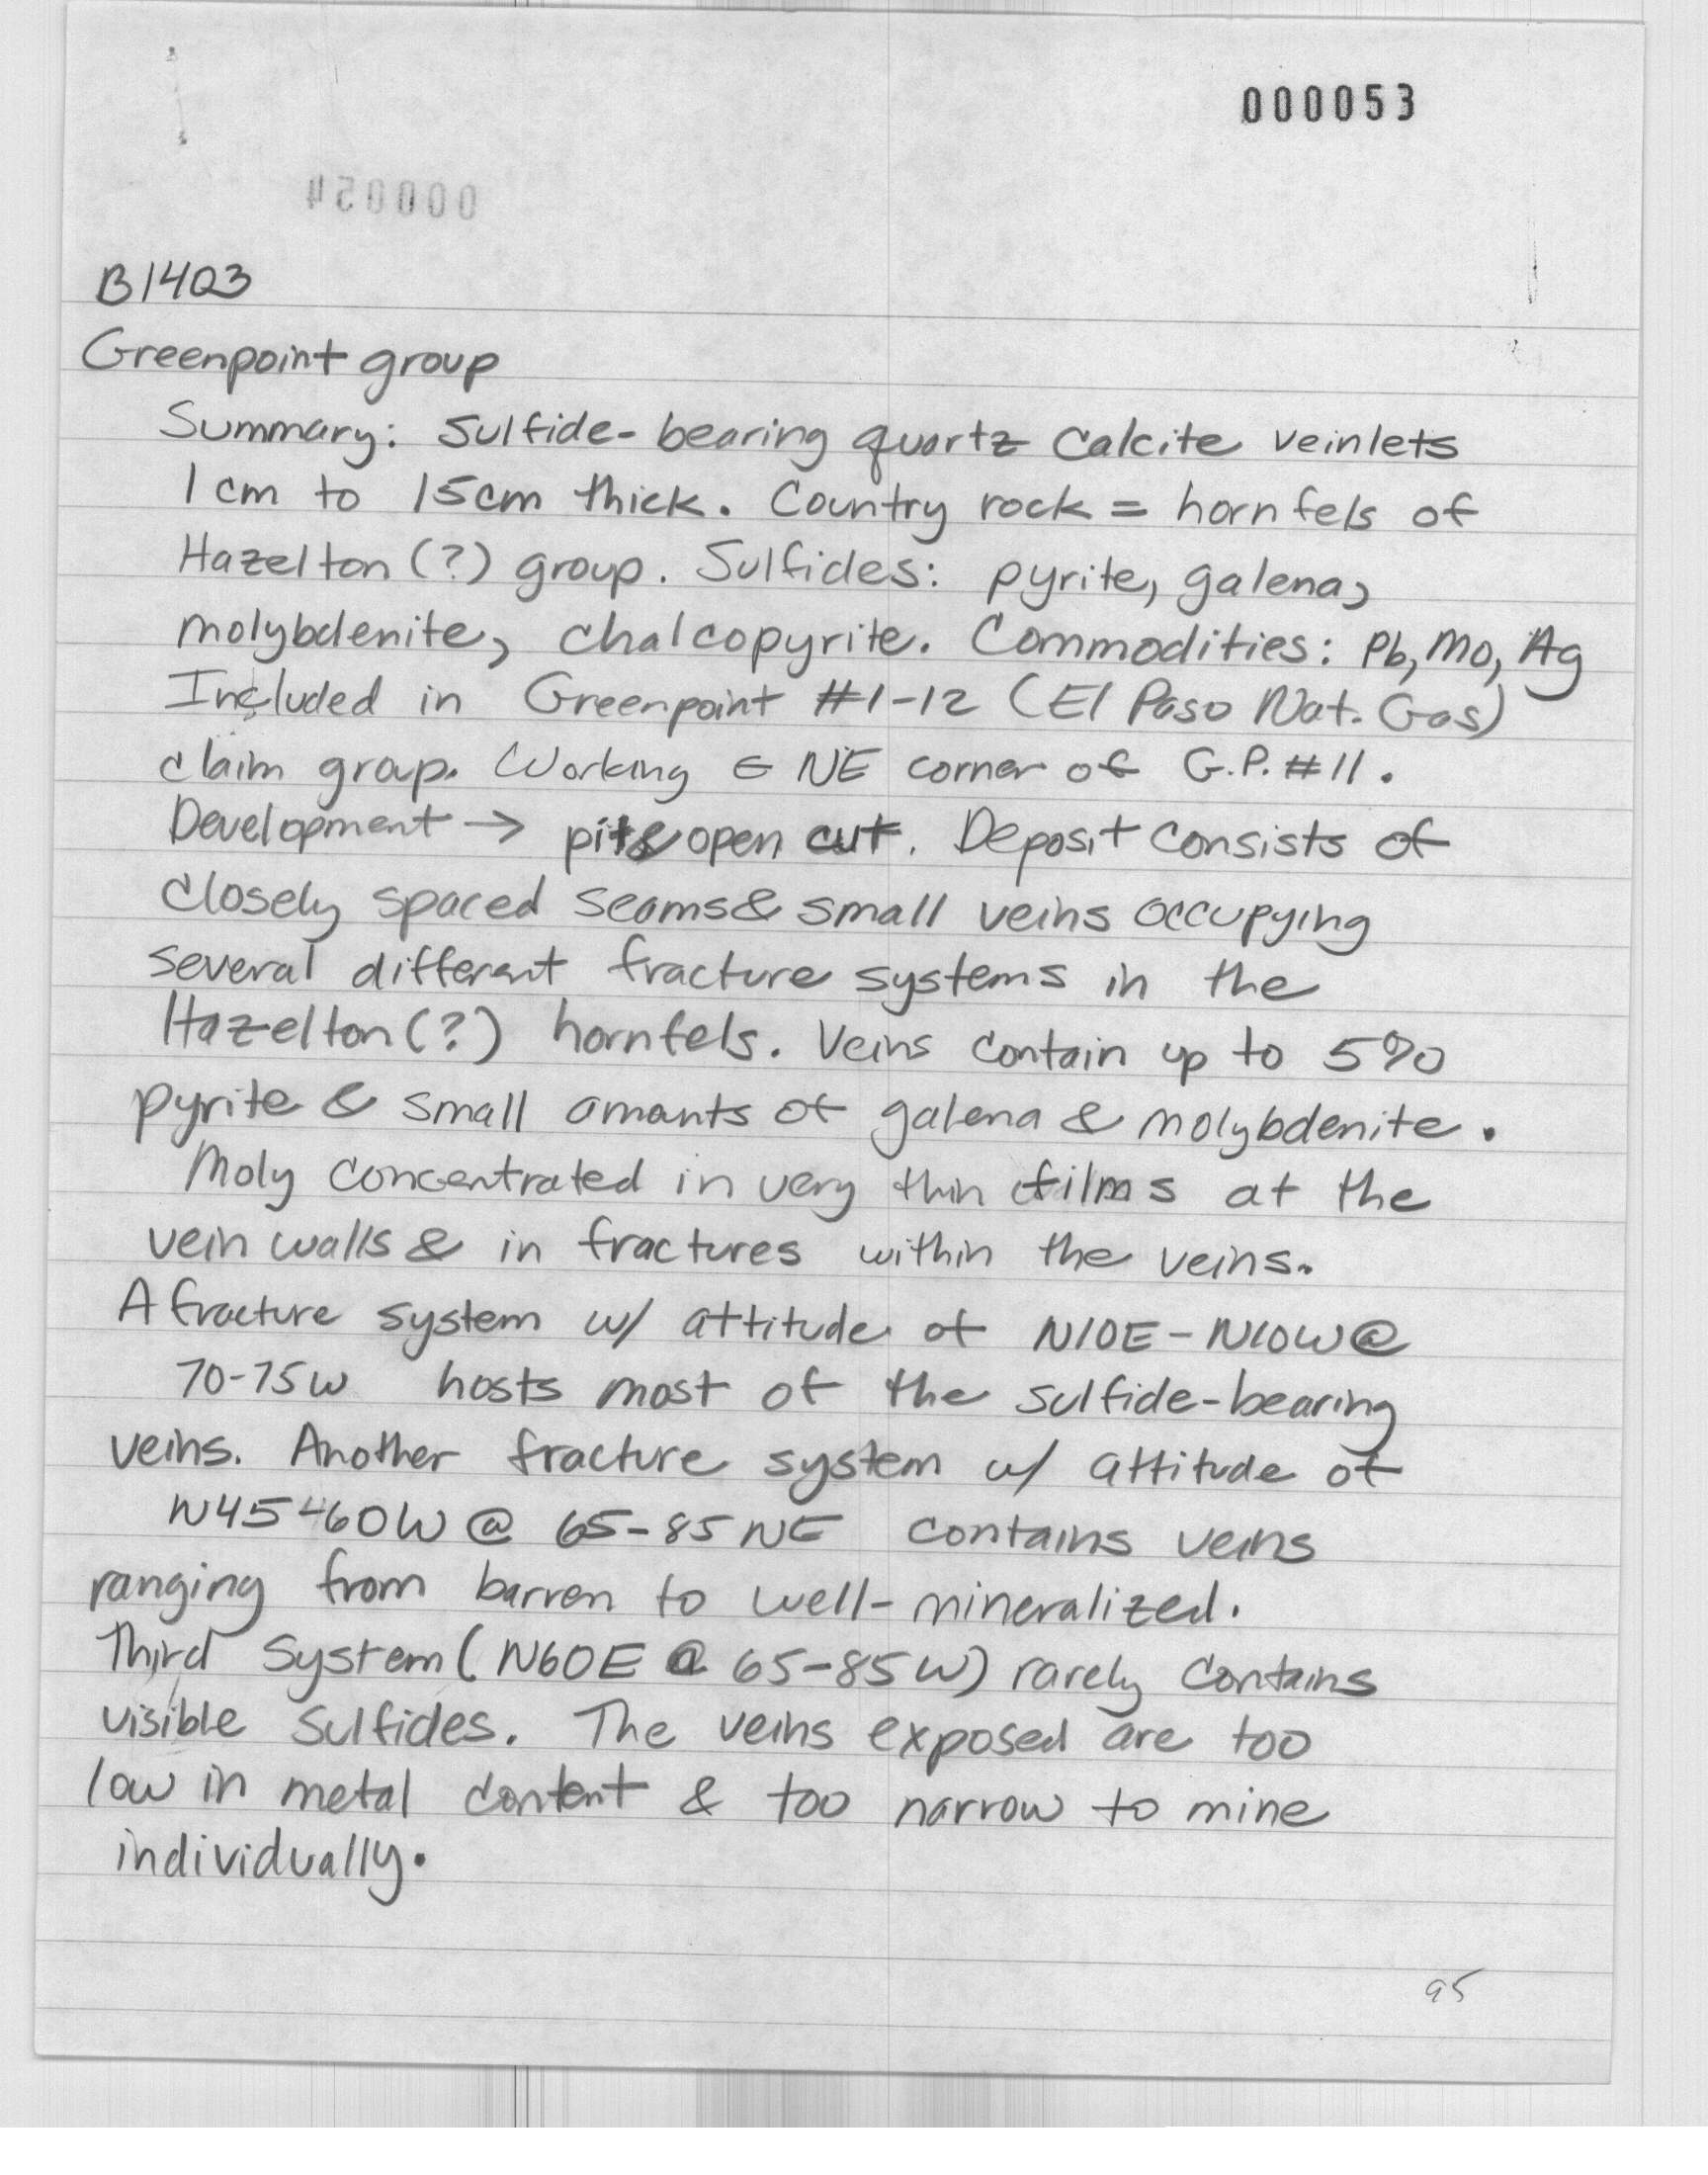 000053
000054
B1403
Greenpoint group
Summary: Sulfide-bearing quartz calcite veinlets
1 cm to 15cm thick. Country rock = hornfels of
Hazelton (?) group. Sulfides: pyrite, galena,
molybdenite, chalcopyrite. Commodities: Pb, Mo, Ag
Included in Greenpoint #1-12 (El Paso Nat. Gas)
claim group. Working @ NE corner of G.P. #11.
Development → pit & open cut. Deposit consists of
closely spaced seams & small veins occupying
several different fracture systems in the
Hazelton (?) hornfels. Veins contain up to 5%
pyrite & small amounts of galena & molybdenite.
Moly concentrated in very thin films at the
vein walls & in fractures within the veins.
A fracture system w/ attitude of N10E-N10W @
70-75W hosts most of the sulfide-bearing
veins. Another fracture system w/ attitude of
N45-60W @ 65-85NE contains veins
ranging from barren to well-mineralized.
Third System (N60E @ 65-85W) rarely contains
visible sulfides. The veins exposed are too
low in metal content & too narrow to mine
individually.
95